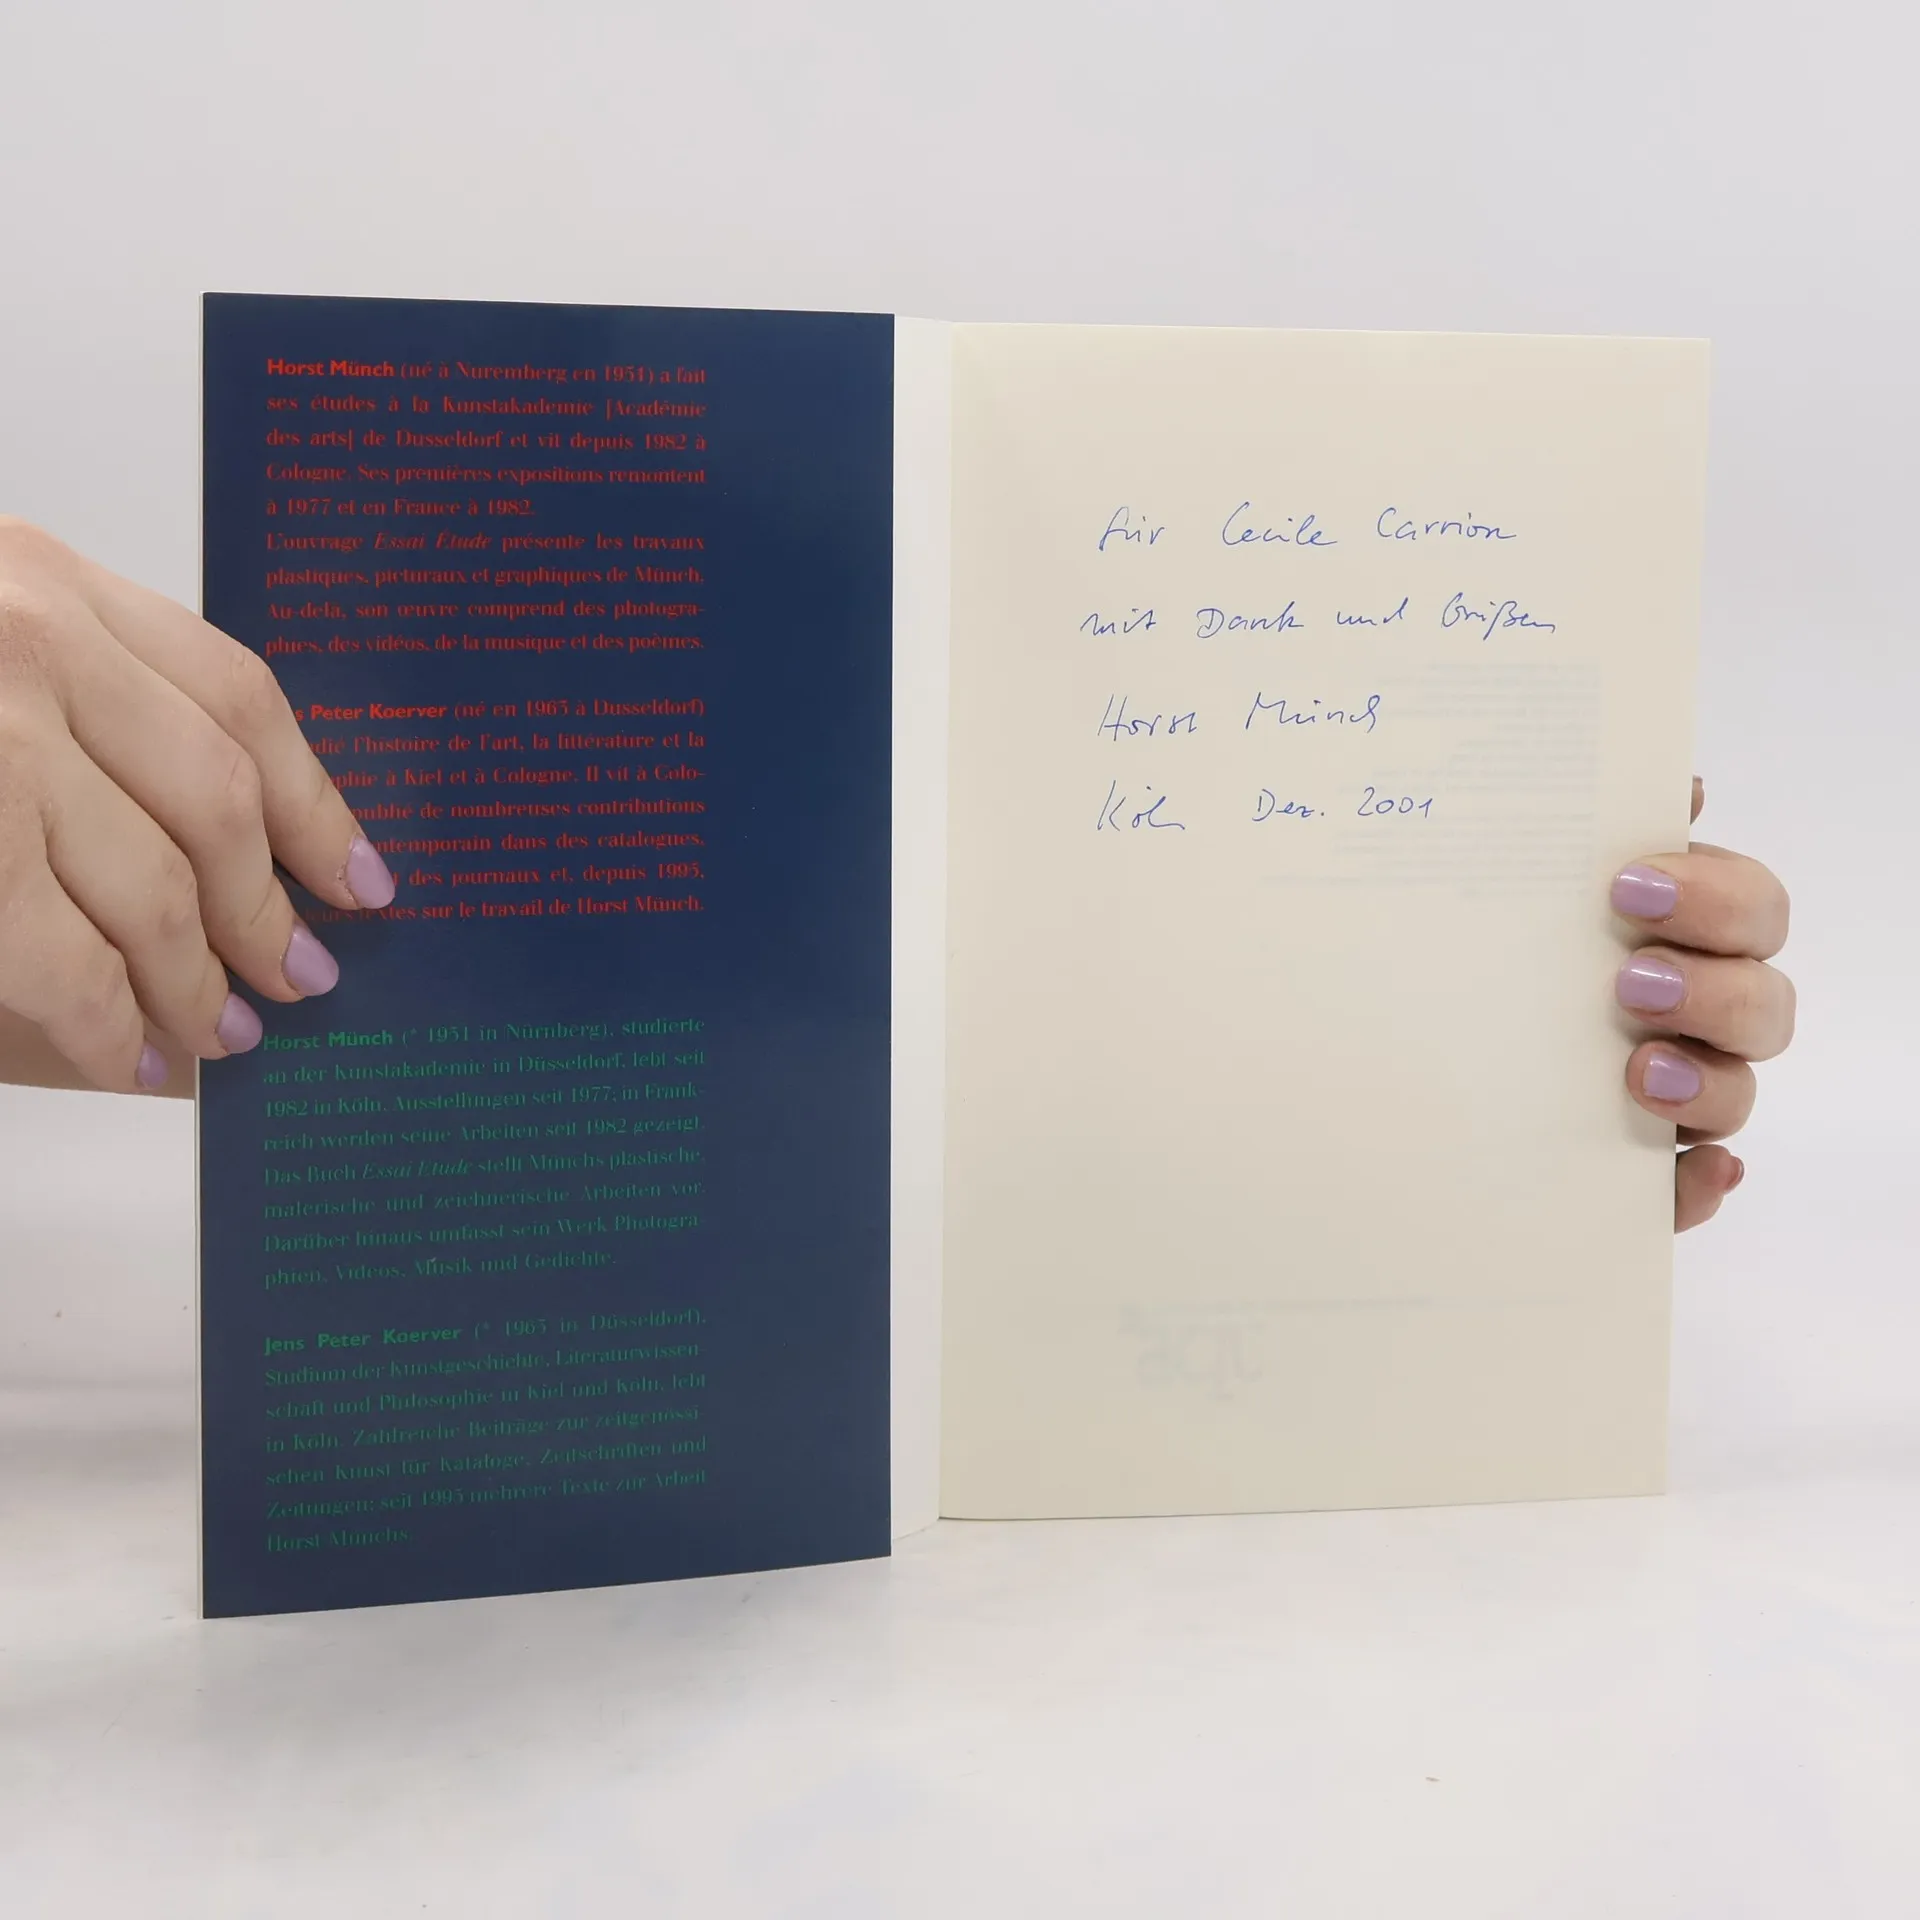 Horst Münch (né à Nuremberg en 1951) a fait
ses études à la Kunstakademie [Académie
des arts] de Dusseldorf et vit depuis 1982 à
Cologne. Ses premières expositions remontent
à 1977 et en France à 1982.
L'ouvrage Essai Étude présente les travaux
plastiques, picturaux et graphiques de Münch.
Au-delà, son œuvre comprend des photogra-
phies, des vidéos, de la musique et des poèmes.
s Peter Koerver (né en 1963 à Dusseldorf)
dié l'histoire de l'art, la littérature et la
phie à Kiel et à Cologne. Il vit à Colo-
publié de nombreuses contributions
ntemporain dans des catalogues,
des journaux et, depuis 1995,
textes sur le travail de Horst Münch.
Horst Münch (* 1951 in Nürnberg), studierte
an der Kunstakademie in Düsseldorf, lebt seit
1982 in Köln. Ausstellungen seit 1977; in Frank-
reich werden seine Arbeiten seit 1982 gezeigt.
Das Buch Essai Etude stellt Münchs plastische,
malerische und zeichnerische Arbeiten vor.
Darüber hinaus umfasst sein Werk Photogra-
phien, Videos, Musik und Gedichte.
Jens Peter Koerver (* 1963 in Düsseldorf),
Studium der Kunstgeschichte, Literaturwissen-
schaft und Philosophie in Kiel und Köln, lebt
in Köln. Zahlreiche Beiträge zur zeitgenössi-
schen Kunst für Kataloge, Zeitschriften und
Zeitungen; seit 1995 mehrere Texte zur Arbeit
Horst Münchs.
für Cecile Carrion
mit Dank und Grüßen
Horst Münch
Köln Dez. 2001